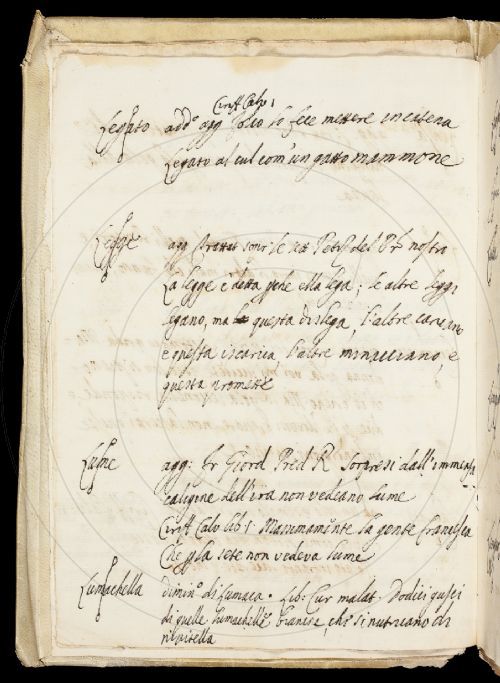 Ciriff Calv 1
Legato add.º agg Poscia lo fece mettere in catena
Legato al cul com'un gatto mammone
Legge agg Trattat sopr le Petiz del Pr nostro
La legge è detta pche ella lega; le altre leggi
legano, ma questa dislega l'altre caricano
e questa iscarica l'altre minacciano, e
questa promette
Lume agg: Fr Giord Pred R Sorpresi dall'immensa
caligine dell'ira non vedeano lume
Ciriff Calv lib 1 Massimamente la gente Francesca
Che p la sete non vedeva lume
Lumachella dimin.º di Lumaca. Lib: Cur malat. Dodici gusci
di quelle lumachelle bianche, che si nutricano di
nipitella